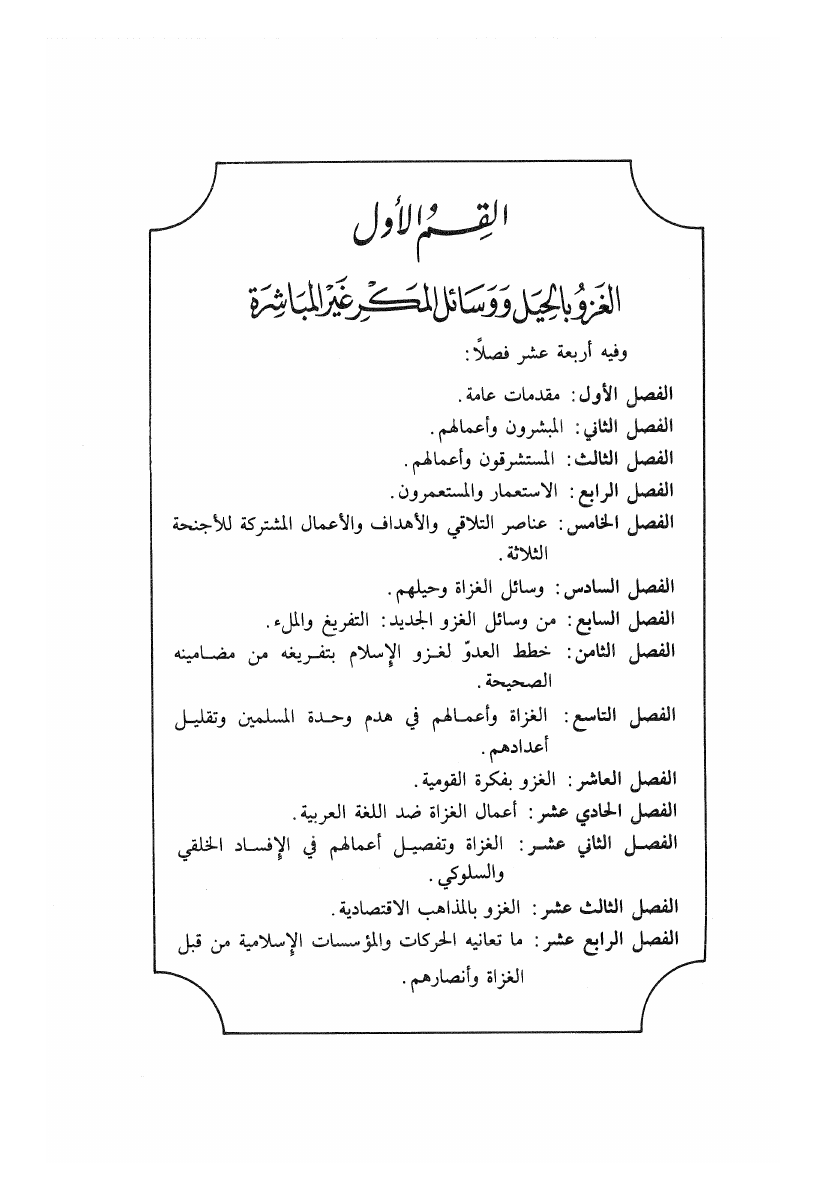 القِسْمُ الأَول
الغَزوُ بالحِيَل وَوَسَائل المَكْرِ غَيْرِ المبَاشِرَة
وفيه أربعة عشر فصلاً :
الفصل الأول : مقدمات عامة .
الفصل الثاني : المبشرون وأعمالهم .
الفصل الثالث : المستشرقون وأعمالهم .
الفصل الرابع : الاستعمار والمستعمرون .
الفصل الخامس : عناصر التلاقي والأهداف والأعمال المشتركة للأجنحة
الثلاثة .
الفصل السادس : وسائل الغزاة وحيلهم .
الفصل السابع : من وسائل الغزو الجديد : التفريغ والملء .
الفصل الثامن : خطط العدوّ لغـزو الإسلام بتفـريغه من مضـامينه
الصحيحة .
الفصل التاسع : الغزاة وأعمـالهم في هدم وحـدة المسلمين وتقليـل
أعدادهم .
الفصل العاشر : الغزو بفكرة القومية .
الفصل الحادي عشر : أعمال الغزاة ضد اللغة العربية .
الفصـل الثاني عشـر : الغزاة وتفصيـل أعمالهم في الإفسـاد الخلقي
والسلوكي .
الفصل الثالث عشر : الغزو بالمذاهب الاقتصادية .
الفصل الرابع عشر : ما تعانيه الحركات والمؤسسات الإسلامية من قبل
الغزاة وأنصارهم .